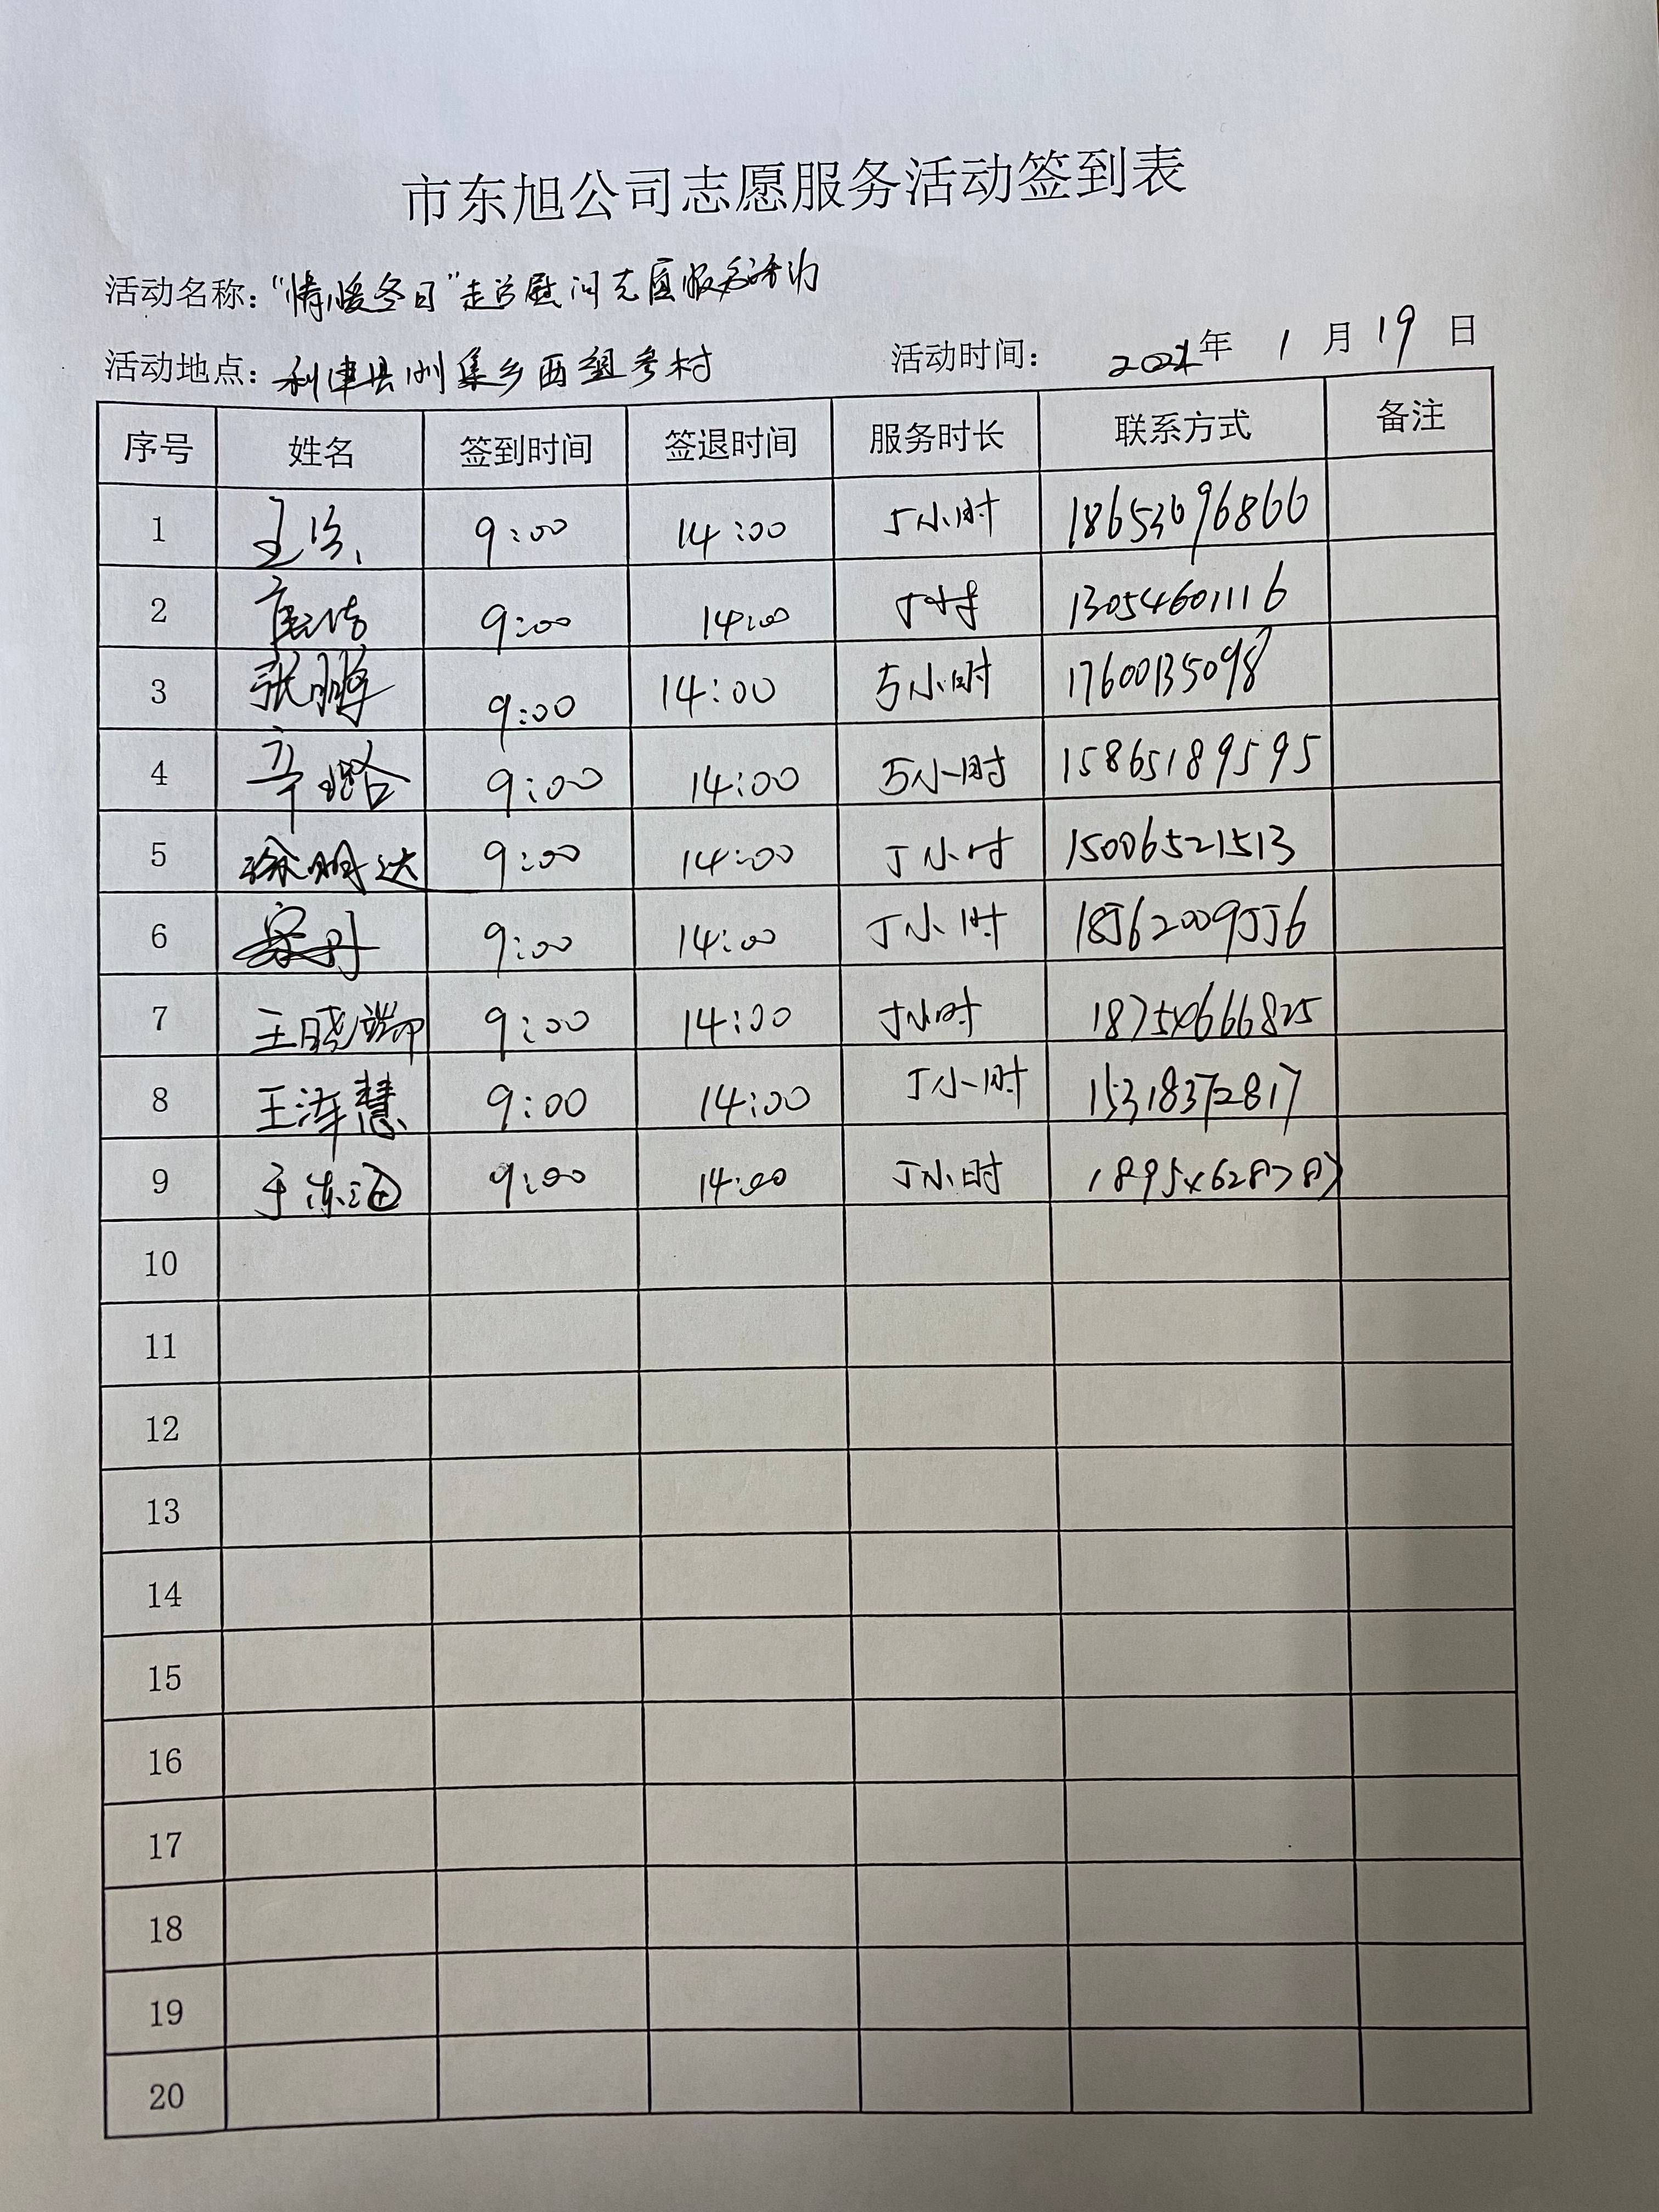 市东旭公司志愿服务活动签到表
活动名称："情暖冬日"走访慰问志愿服务活动
活动地点：利津县 集乡西 村 活动时间： 年 1 月 19 日
序号 姓名 签到时间 签退时间 服务时长 联系方式 备注
1 9:00 14:00 5小时 18653696866
2 9:00 14:00 13054601116
3 张鹏 9:00 14:00 5小时 17600135098
4 辛璐 9:00 14:00 5小时 15865189595
5 徐明达 9:00 14:00 5小时 15006521513
6 9:00 14:00 5小时 18562009556
7 王晓 9:00 14:00 5小时
8 王泽慧 9:00 14:00 5小时 15318372817
9 于 9:00 14:00 5小时
10
11
12
13
14
15
16
17
18
19
20